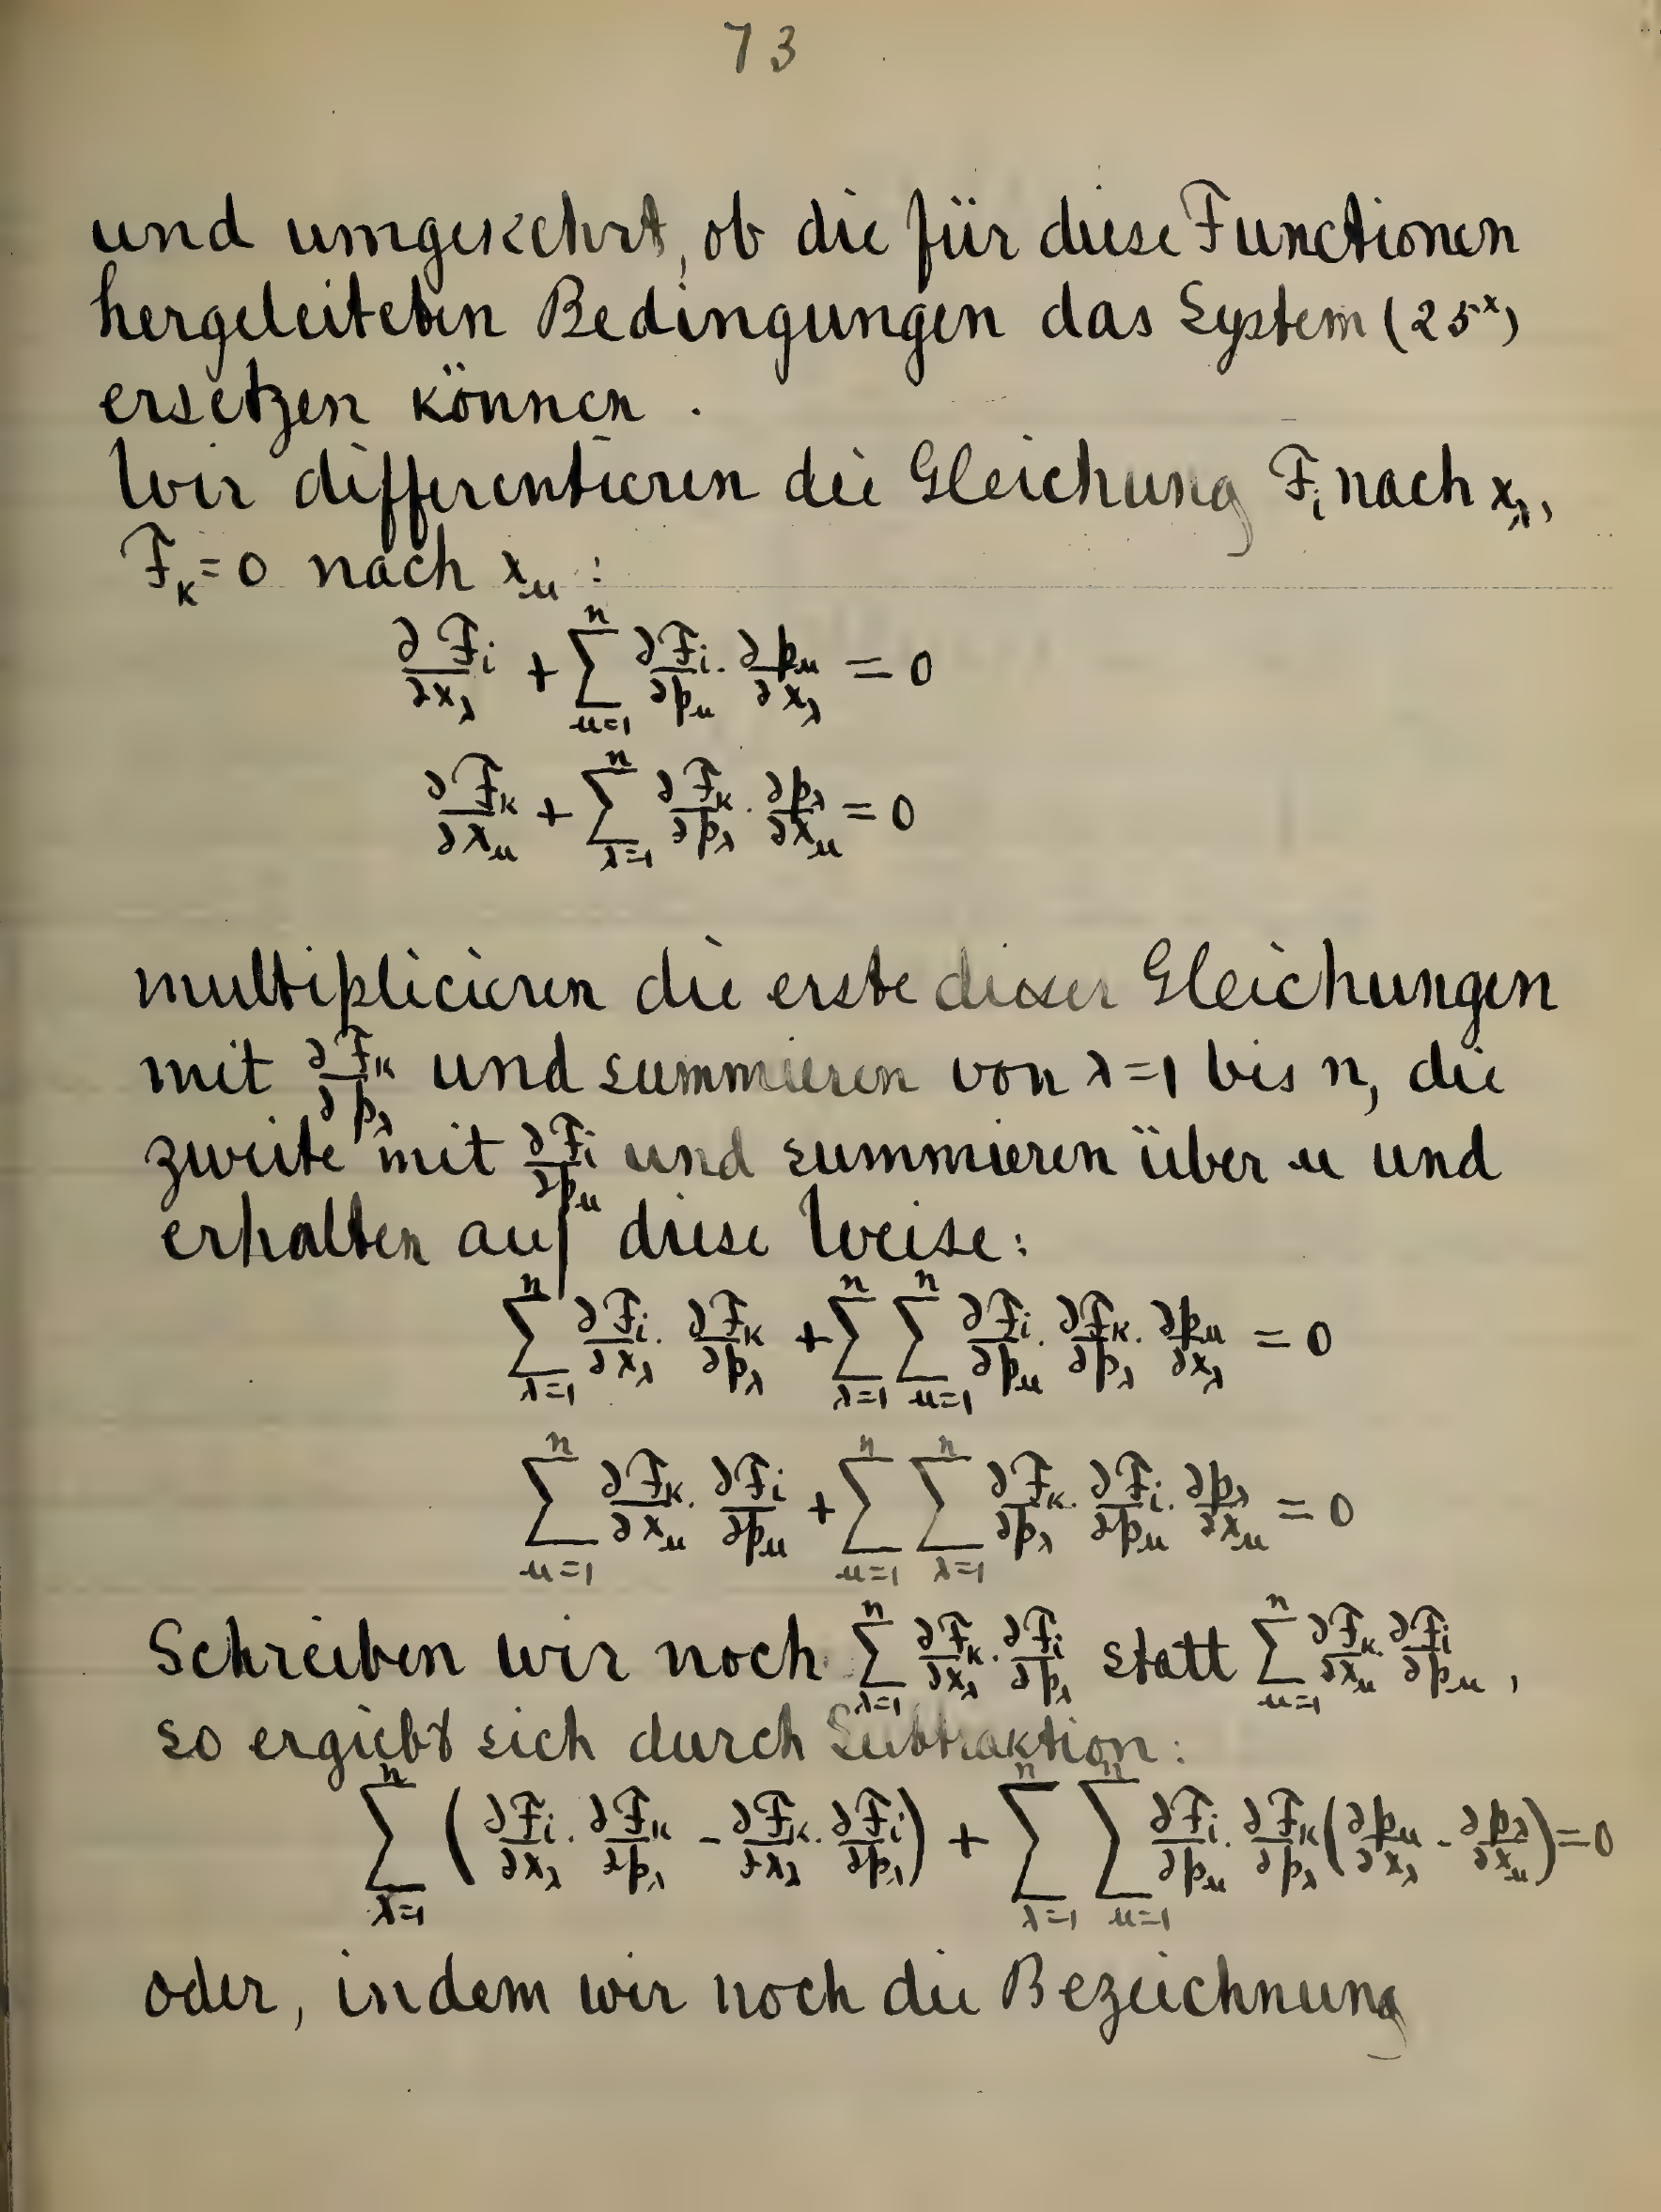 73
und umgekehrt, ob die für diese Functionen
hergeleiteten Bedingungen das System (25ˣ)
ersetzen können.
Wir differentieren die Gleichung Fᵢ nach x_λ,
F_κ = 0 nach x_μ:
∂Fᵢ/∂x_λ + ∑_{μ=1}^{n} ∂Fᵢ/∂p_μ · ∂p_μ/∂x_λ = 0
∂F_κ/∂x_μ + ∑_{λ=1}^{n} ∂F_κ/∂p_λ · ∂p_λ/∂x_μ = 0
multiplicieren die erste dieser Gleichungen
mit ∂F_κ/∂p_λ und summieren von λ=1 bis n, die
zweite mit ∂Fᵢ/∂p_μ und summieren über μ und
erhalten auf diese Weise:
∑_{λ=1}^{n} ∂Fᵢ/∂x_λ · ∂F_κ/∂p_λ + ∑_{λ=1}^{n} ∑_{μ=1}^{n} ∂Fᵢ/∂p_μ · ∂F_κ/∂p_λ · ∂p_μ/∂x_λ = 0
∑_{μ=1}^{n} ∂F_κ/∂x_μ · ∂Fᵢ/∂p_μ + ∑_{μ=1}^{n} ∑_{λ=1}^{n} ∂F_κ/∂p_λ · ∂Fᵢ/∂p_μ · ∂p_λ/∂x_μ = 0
Schreiben wir noch ∑_{λ=1}^{n} ∂F_κ/∂x_λ · ∂Fᵢ/∂p_λ statt ∑_{μ=1}^{n} ∂F_κ/∂x_μ · ∂Fᵢ/∂p_μ,
so ergiebt sich durch Subtraktion:
∑_{λ=1}^{n} (∂Fᵢ/∂x_λ · ∂F_κ/∂p_λ - ∂F_κ/∂x_λ · ∂Fᵢ/∂p_λ) + ∑_{λ=1}^{n} ∑_{μ=1}^{n} ∂Fᵢ/∂p_μ · ∂F_κ/∂p_λ (∂p_μ/∂x_λ - ∂p_λ/∂x_μ) = 0
oder, indem wir noch die Bezeichnung